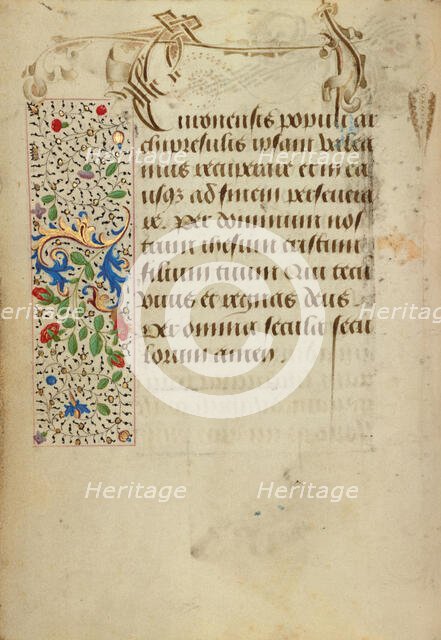 Timonensis populi ar
chipresulis ipsam valea
mus recuperare et in ea
usq; ad finem persevera
re. Per dominum nos
trum ihesum cristum
filium tuum Qui tecū
vivis et regnas deus
Per omnia secula secu
lorum amen
Heritage Heritage Heritage
Heritage Heritage Heritage
Heritage Heritage